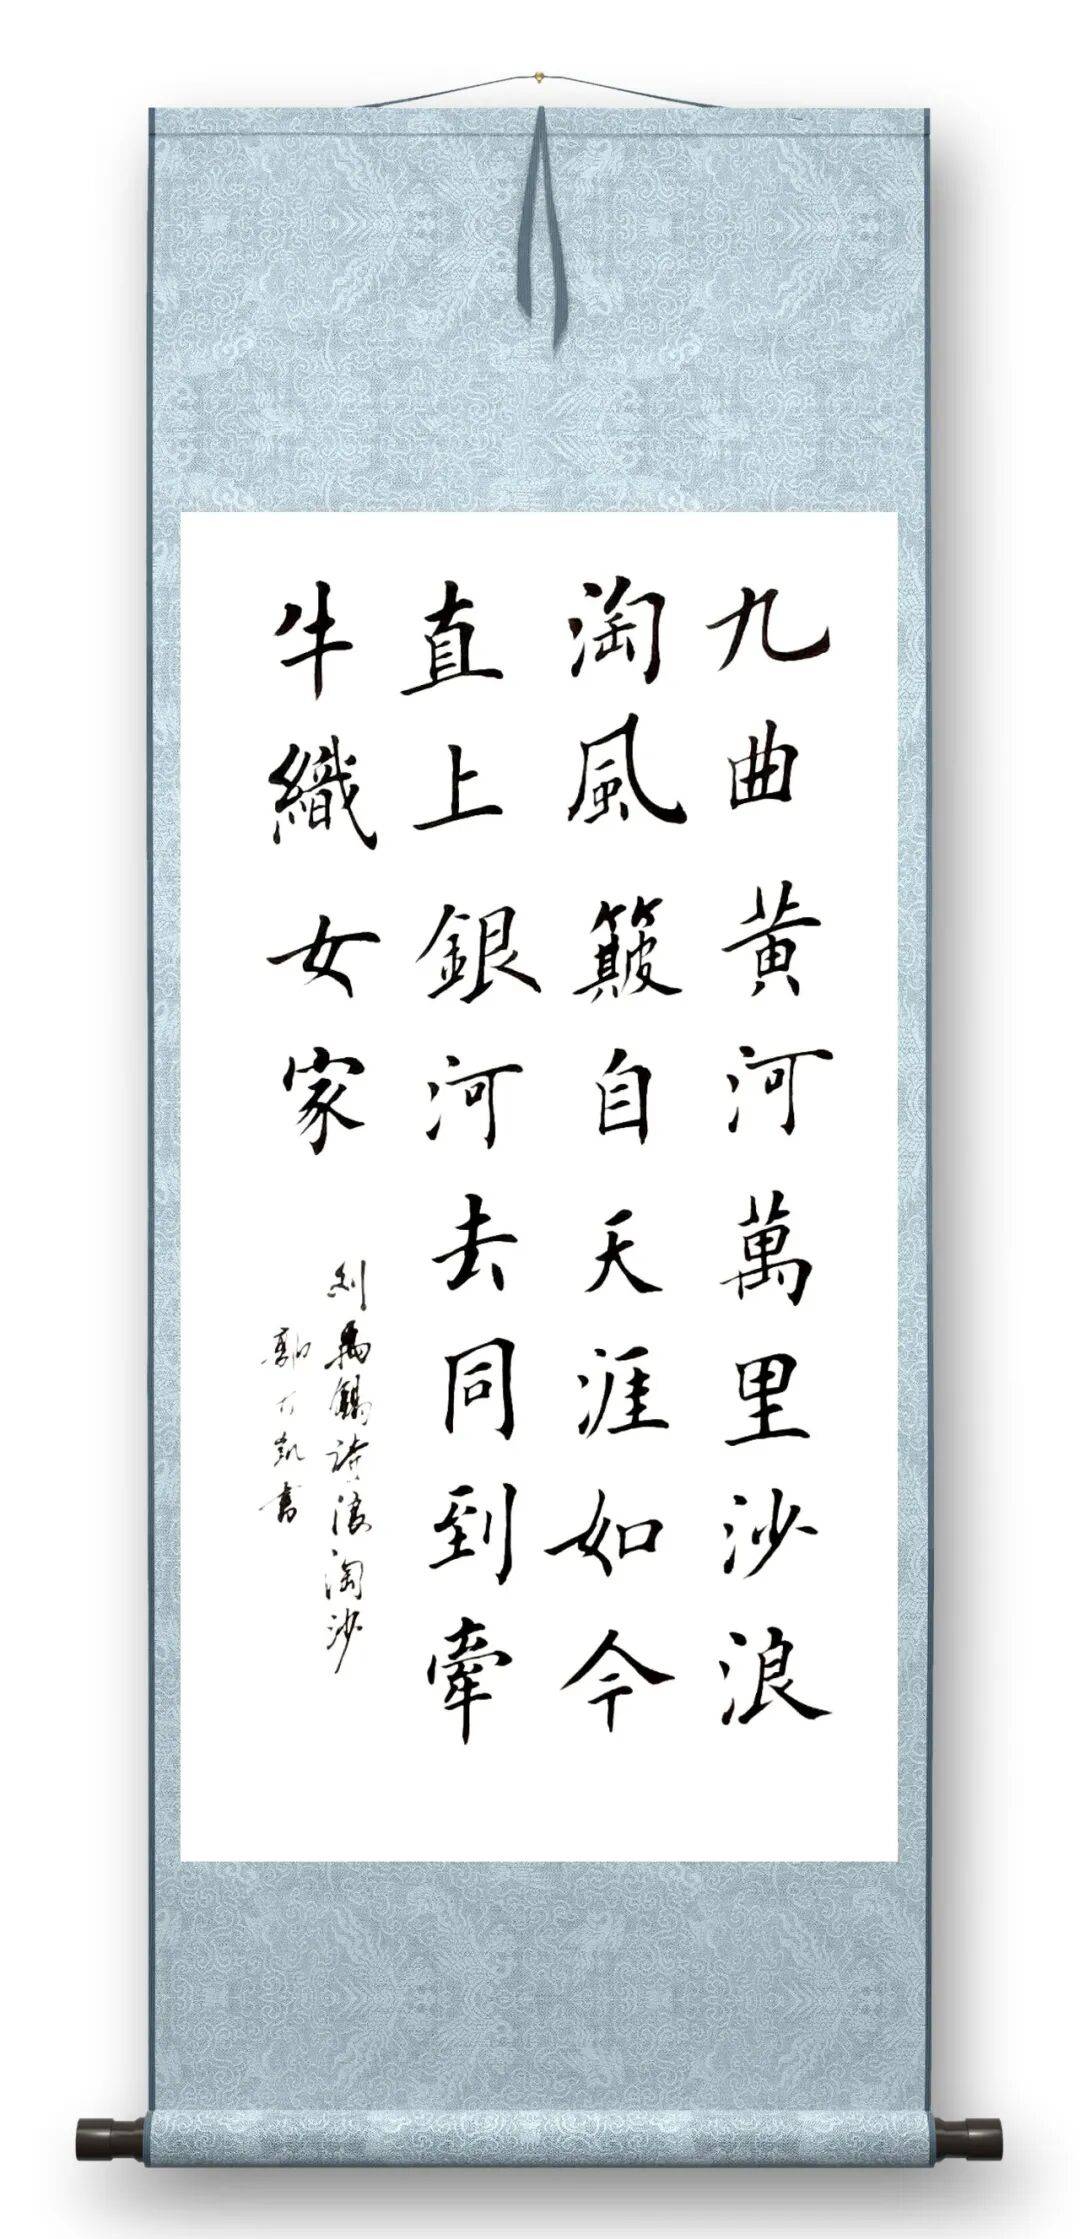 九曲黄河萬里沙浪
淘風簸自天涯如今
直上銀河去同到牽
牛織女家
劉禹錫詩浪淘沙
郭凱書